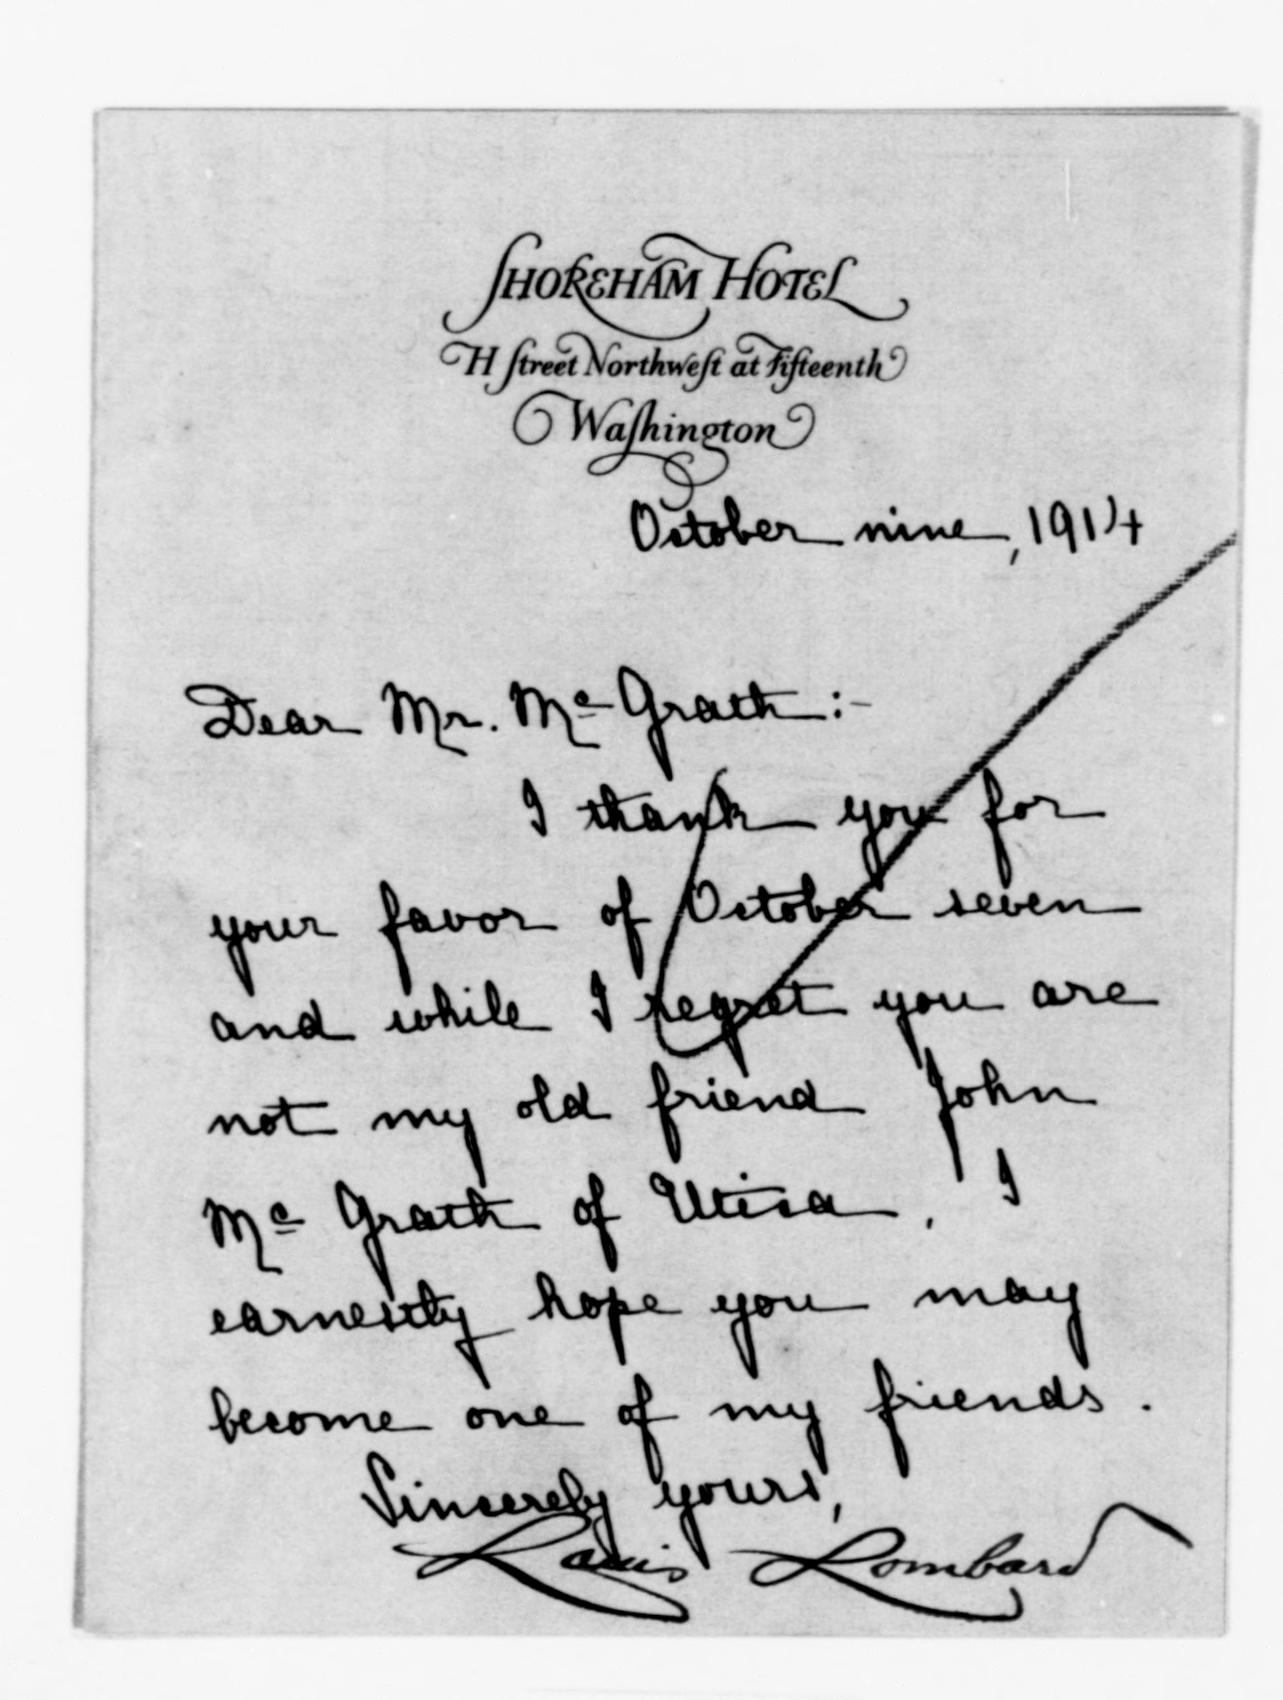 SHOREHAM HOTEL
H Street Northwest at Fifteenth
Washington
October nine, 1914
Dear Mr. Mc Grath:-
I thank you for
your favor of October seven
and while I regret you are
not my old friend John
Mc Grath of Utica. I
earnestly hope you may
become one of my friends.
Sincerely yours,
Louis Lombard